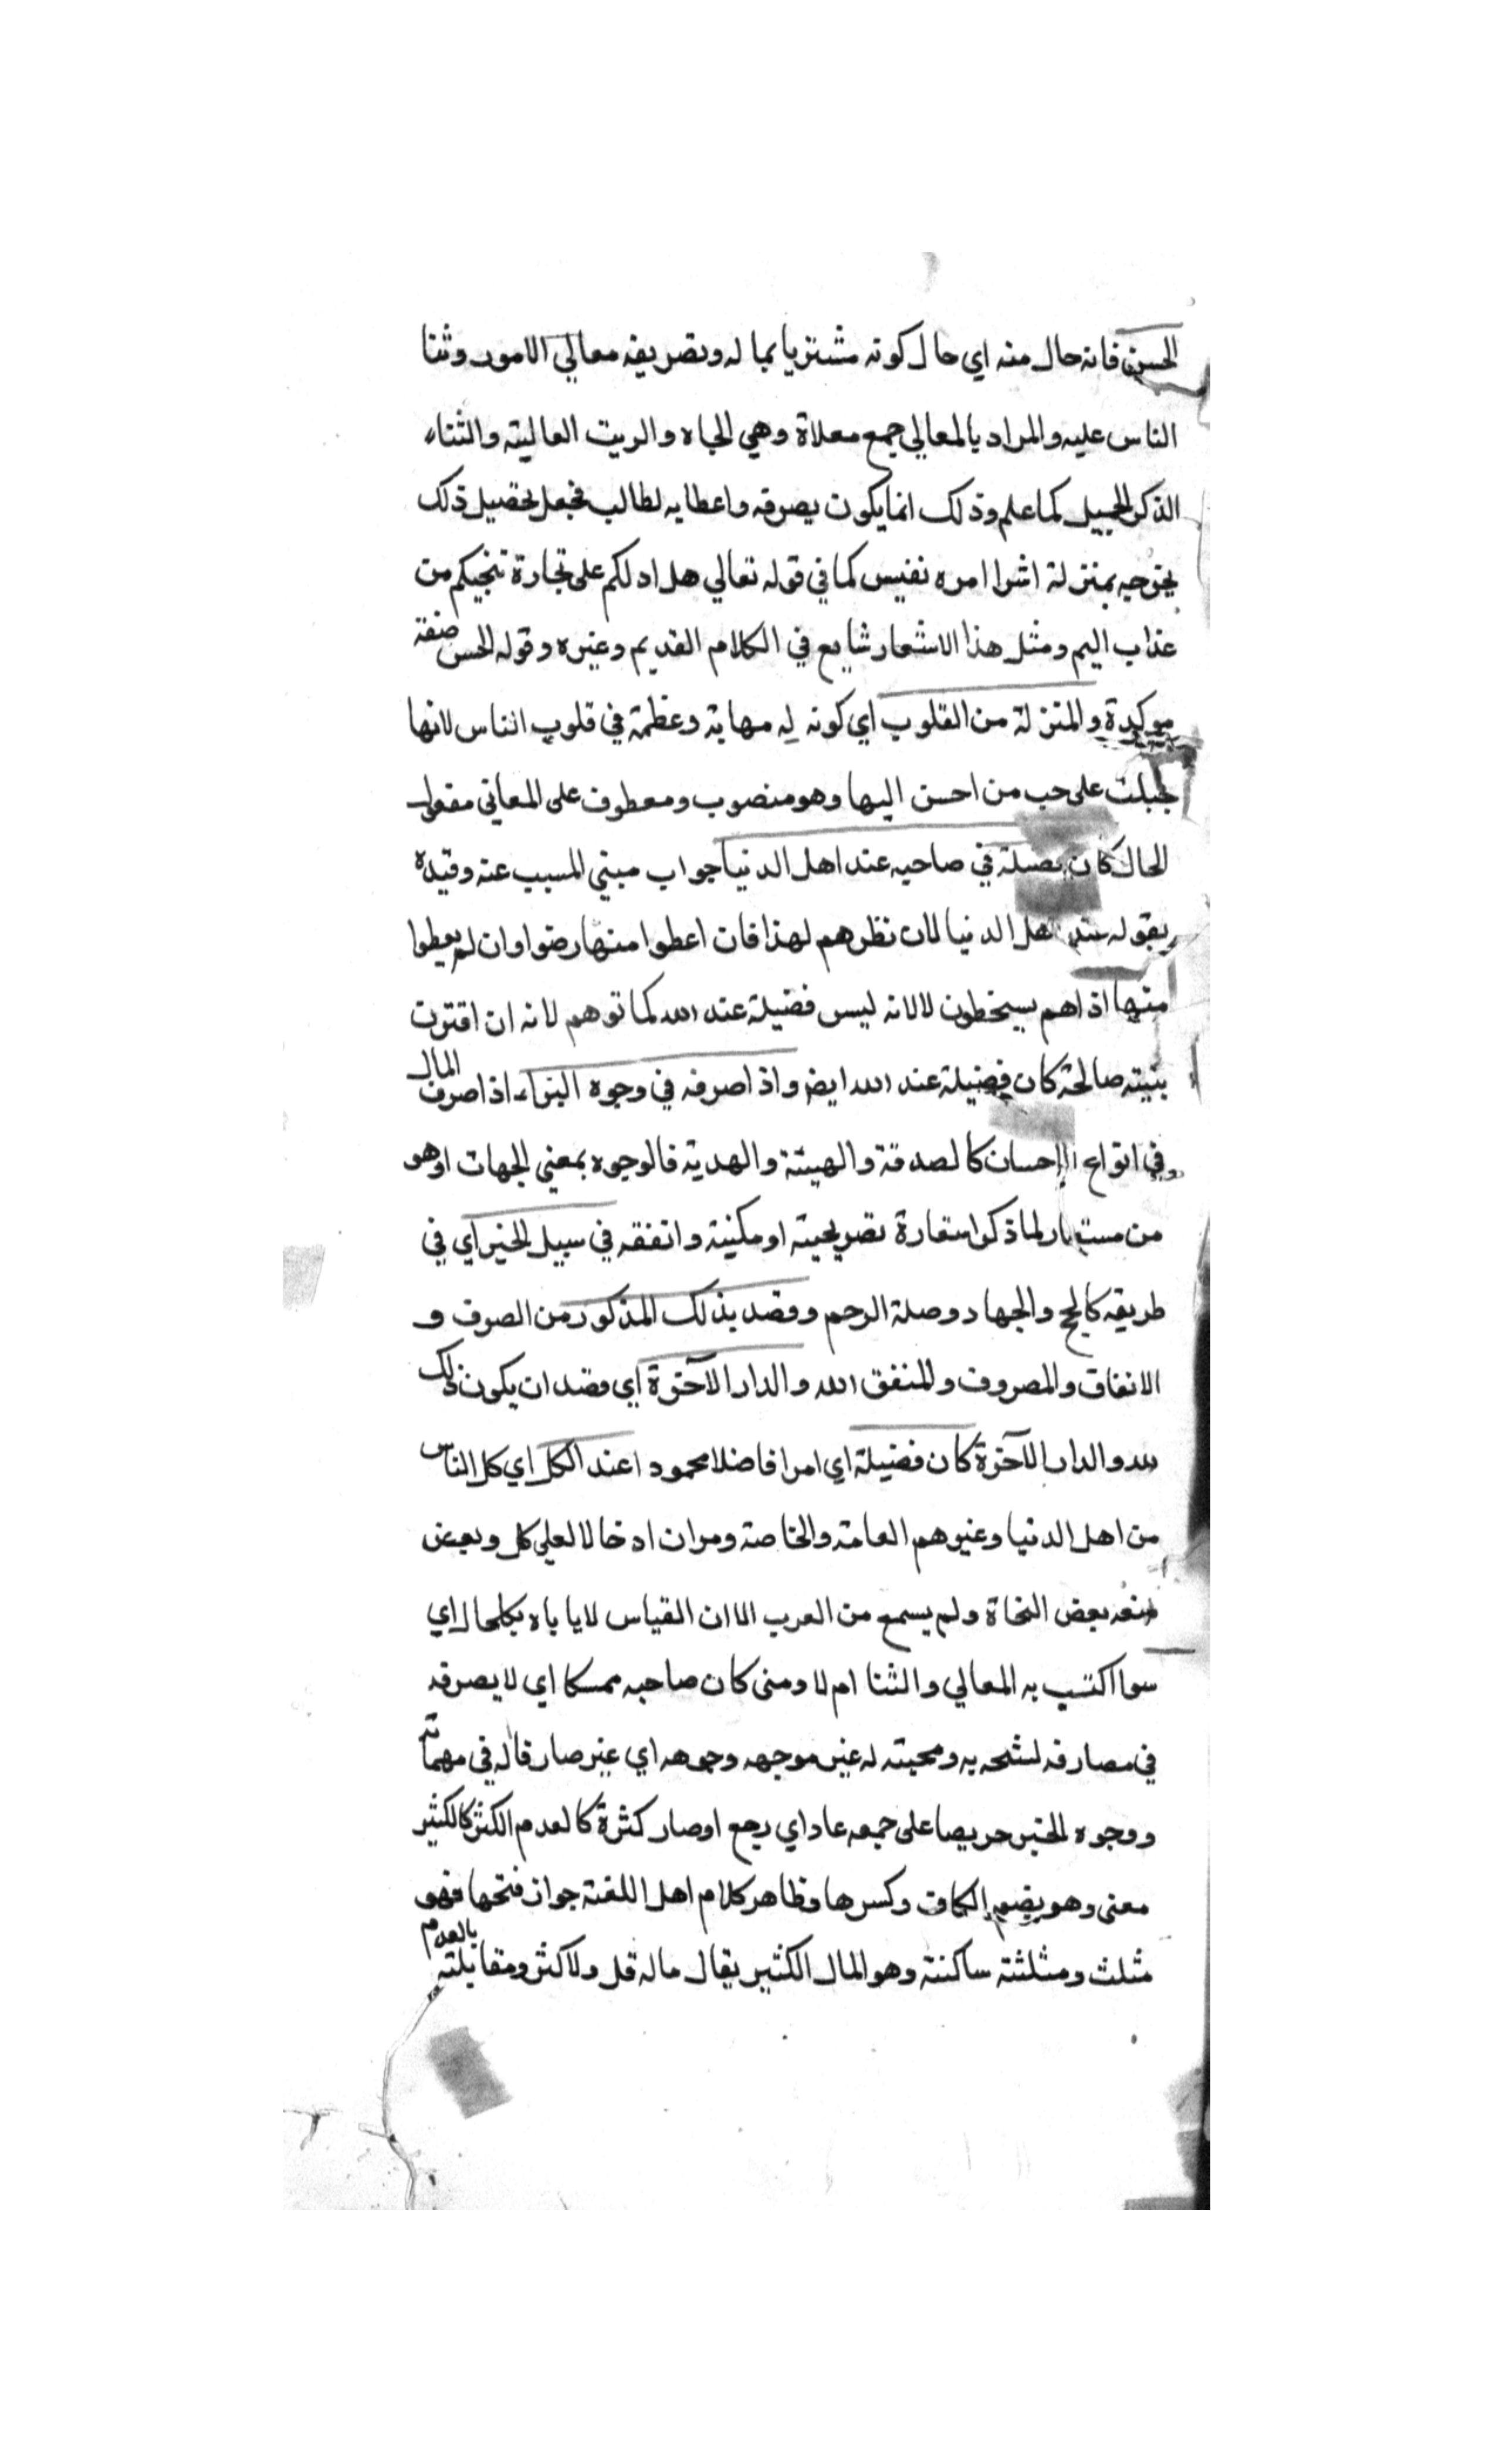 الحسن فانه حال منه اي حال كونه مشتريا بما له وتصريفه معالي الامور وثنا
الناس عليه والمراد بالمعالي جمع معلاة وهي الجاه والريت العالية والثناء
الذكر الجميل كما علم وذلك انما يكون بصرفه واعطايه لطالب فجعل تحصيل ذلك
بمنزلة اشرا امره نفيس كما في قوله تعالي هل ادلكم على تجارة تنجيكم من
عذاب اليم ومثل هذا الاشعار شايع في الكلام القديم وغيره وقوله الحسن صفة
موكدة والمنزلة من القلوب اي كونه له مهابة وعظمة في قلوب الناس لانها
جبلت على حب من احسن اليها وهو منصوب ومعطوف على المعاني مقول
الحال كان في صاحبه عند اهل الدنيا جواب مبتي المسبب عنه وقيده
بقوله عند اهل الدنيا لان نظرهم لهذا فان اعطوا منها رضوا وان لم يعطوا
منها اذا هم يسخطون لا لانه ليس فضيلة عند الله كما توهم لانه ان اقترت
بنية صالحة كان فضيلة عند الله ايض واذا صرفه في وجوه البراء اذا صرف المال
في انواع الاحسان كالصدقة والهيئة والهدية فالوجوه بمعني الجهات او هو
من مستعار لما ذكر استعارة تصريحية او مكنية وانفقه في سبيل الخير اي في
طريقه كالحج والجهاد وصلة الرحم وقصد بذلك المذكور من الصرف و
الانفاق والمصروف والمنفق الله والدار الآخرة اي قصد ان يكون ذلك
لله والدار الآخرة كان فضيلة اي امرا فاضلا محمودا عند الكل اي كل الناس
من اهل الدنيا وغيرهم العامة والخاصة ومران ادخال ال علي كل وبعض
منعه بعض النحاة ولم يسمع من العرب الا ان القياس لا ياباه بكل حال اي
سوا اكتسب به المعالي والثنا ام لا ومتى كان صاحبه ممسكا اي لا يصرفه
في مصارفه لشحه به ومحبته له غير موجهه وجوهه اي غير صارفا له في مهماته
ووجوه الخير حريصا على جمعه عاد اي رجع او صار كثرة كالعدم الكثر كالكثير
معنى وهو بضم الكاف وكسرها وظاهر كلام اهل اللغة جواز فتحها فهو
مثلث ومثلثة ساكنة وهو المال الكثير يقال ماله قل ولا كثر ومقابلته بالعدم